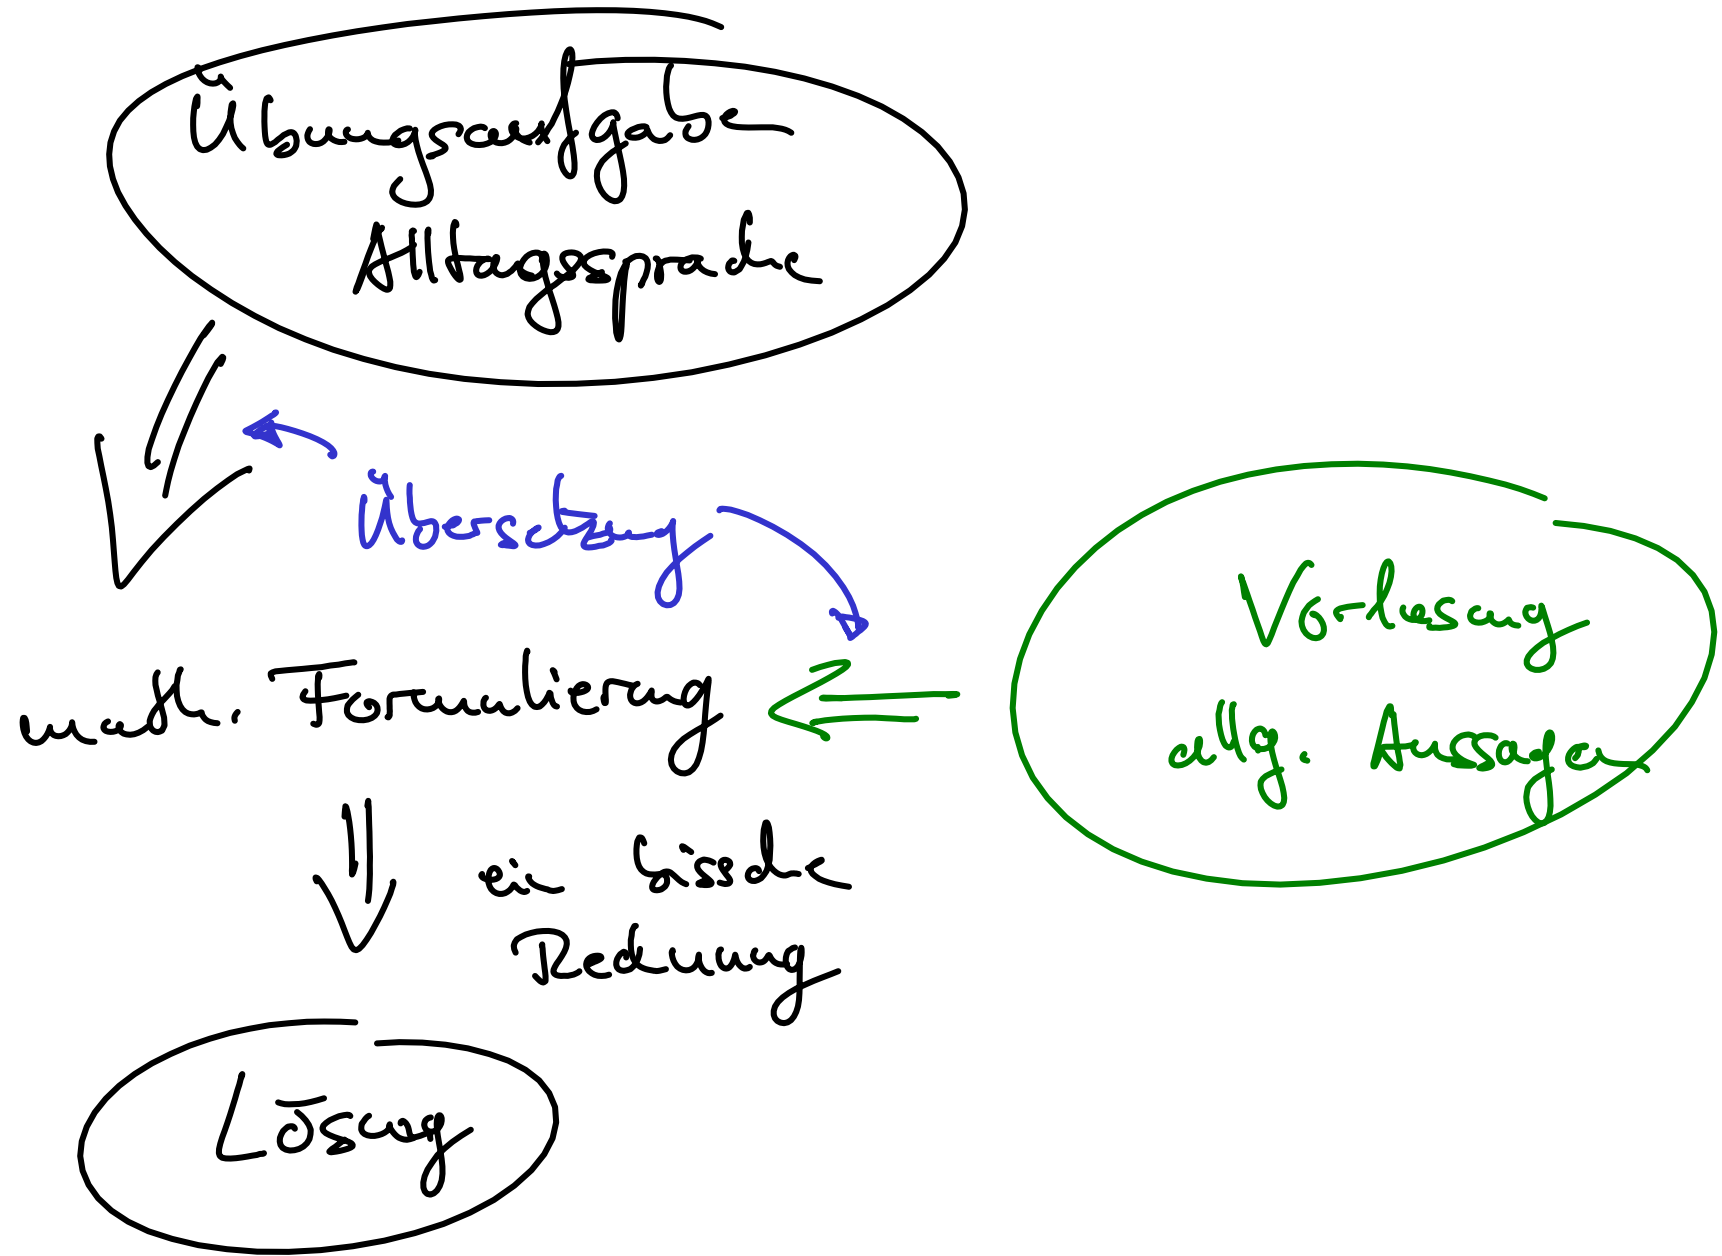 Übungsaufgaben
Alltagssprache
Übersetzung
math. Formulierung
Vorlesung
allg. Aussagen
ein bissche
Rechnung
Lösung